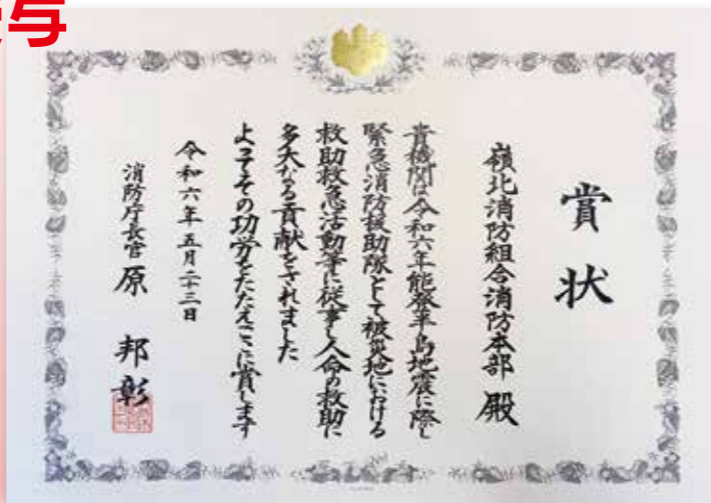 与
賞状
嶺北消防組合消防本部 殿
貴機関は令和六年能登半島地震に際し
緊急消防援助隊として被災地における
救助救急活動等に従事し人命の救助に
多大なる貢献をされました
よってその功労をたたえここに賞します
令和六年五月二十三日
消防庁長官 原 邦彰